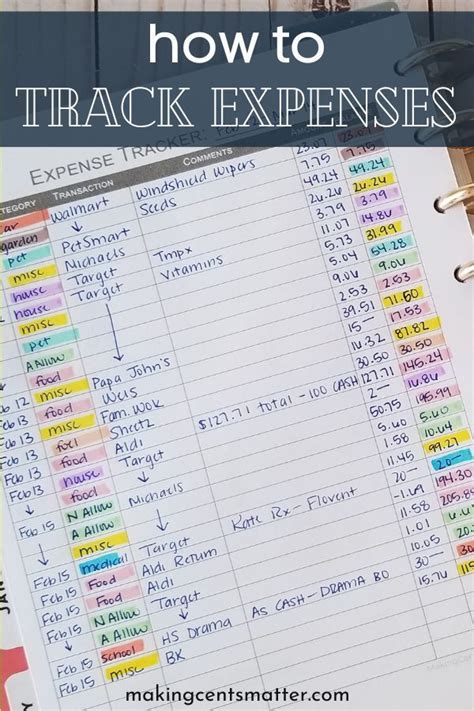 how to
TRACK EXPENSES
EXPENSE TRACKER:
CATEGORY TRANSACTION COMMENTS
Walmart Windshield Wipers 23.07
garden Seeds 7.75 7.75
pet PetSmart 49.24 49.24
misc Michaels 26.26 26.26
house Target Tmpx 3.79 3.79
house Target Vitamins 14.86
misc 31.99
pet 5.73 54.28
A Allow 5.04 9.06
food Papa John's 9.06 2.53
Feb 12 misc Weis 2.53 71.50
Feb 13 food Fam. Wok 39.51 17.53
Feb 13 fuel Sheetz 15— 87.82
Feb 13 food Aldi 17.53 30.50
Feb 13 house $127.71 total - 100 CASH 30.50 145.24
food 127.71 16.86
Feb 15 N Allow Michaels 195.99
A Allow 50.75 5.60
misc Target 10.64
Feb 15 medical Aldi Return Kate Rx - Flovent 11.58 99.27
Feb 15 Food Aldi 10.04 20—
Food Target 4.45 194.30
N Allow 20—
A Allow HS Drama AS CASH - DRAMA BO -1.69
Feb 15 school BK 11.55
Feb 15 misc 15.76
makingcentsmatter.com